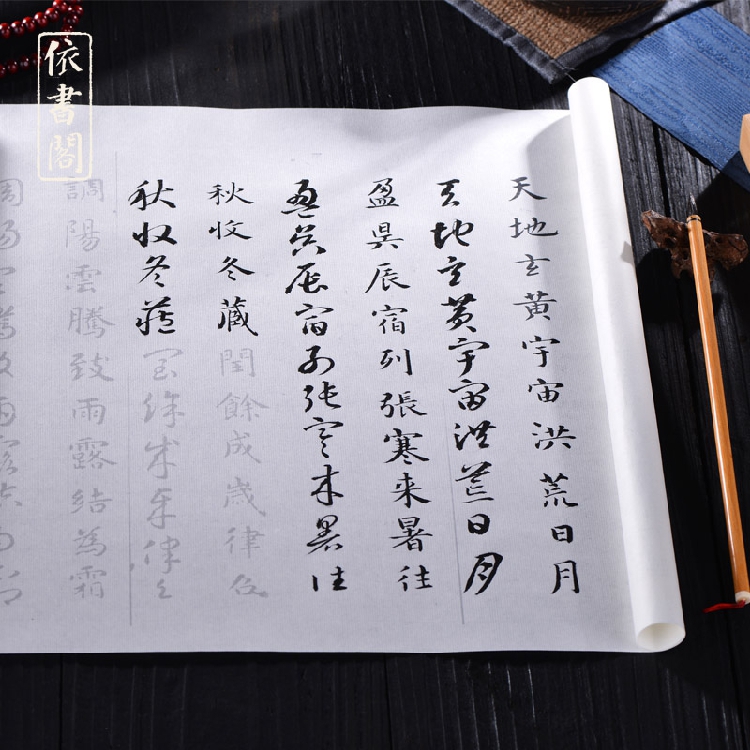 依書閣
天地玄黃宇宙洪荒日月
天地玄黃宇宙洪荒日月
盈昃辰宿列張寒来暑往
盈昃辰宿列張寒来暑往
秋收冬藏閏餘成歲律呂
秋收冬藏閏餘成歲律呂
調陽雲騰致雨露結為霜